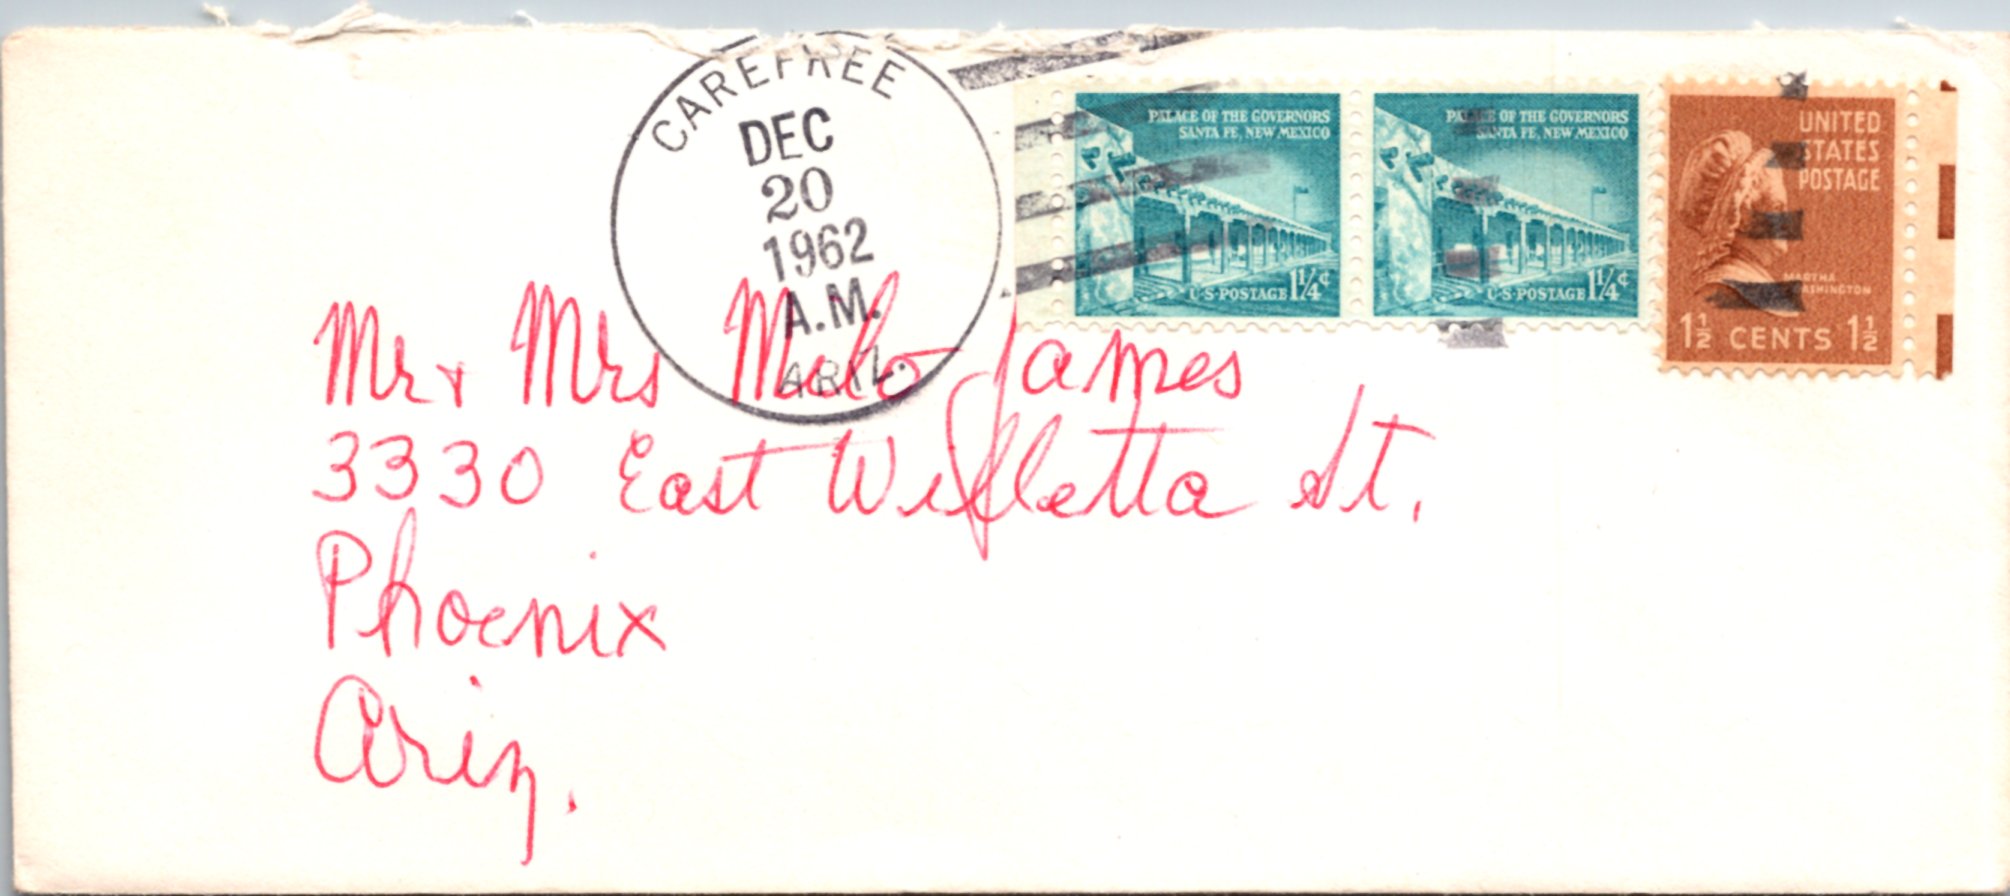 CAREFREE
DEC
20
1962
A.M.
ARIZ.
PALACE OF THE GOVERNORS
SANTA FE, NEW MEXICO
U·S·POSTAGE 1¼¢
PALACE OF THE GOVERNORS
SANTA FE, NEW MEXICO
U·S·POSTAGE 1¼¢
UNITED
STATES
POSTAGE
MARTHA
WASHINGTON
1½ CENTS 1½
Mr & Mrs James
3330 East Willetta St.
Phoenix
Ariz.